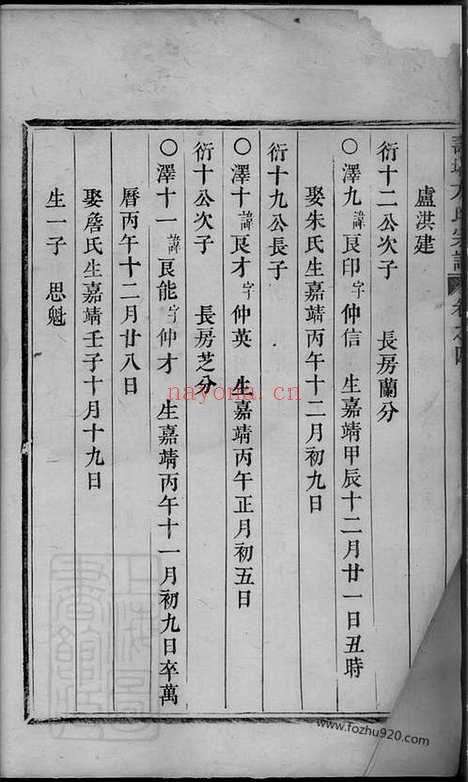 盧洪建
衍十二公次子　長房蘭分
○澤九諱良印字仲信　生嘉靖甲辰十二月廿一日丑時
娶朱氏生嘉靖丙午十二月初九日
衍十九公長子
○澤十諱良才字仲英　生嘉靖丙午正月初五日
衍十公次子　長房芝分
○澤十一諱良能字仲才　生嘉靖丙午十一月初九日卒萬
曆丙午十二月廿八日
娶詹氏生嘉靖壬子十月十九日
生一子　思魁
nayona.cn
www.fozhu920.com